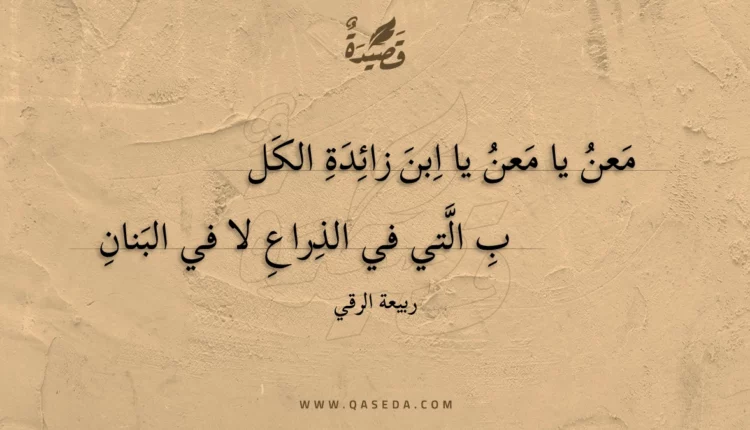 قَصِيدَةٌ
مَعنُ يا مَعنُ يا اِبنَ زائِدَةِ الكَل
بِ الَّتي في الذِراعِ لا في البَنانِ
ربيعة الرقي
WWW.QASEDA.COM